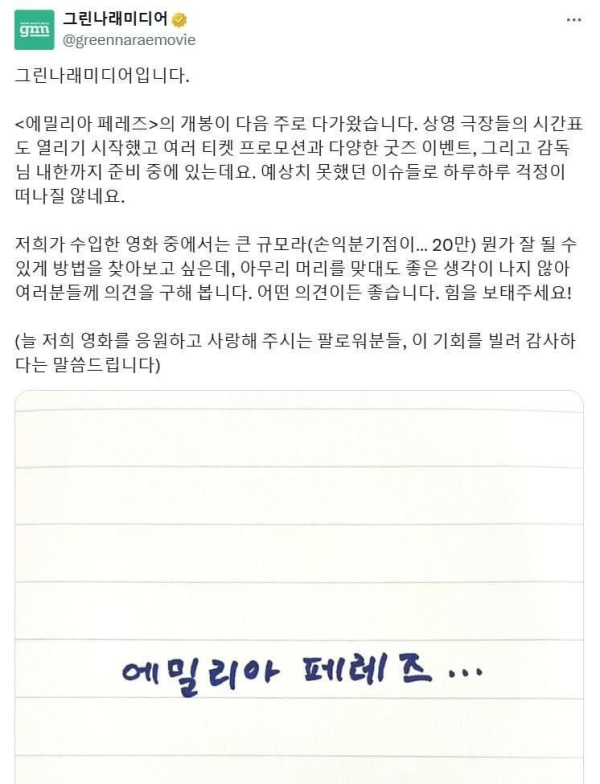 그린나래미디어
@greennaraemovie
gnm
그린나래미디어입니다.
<에밀리아 페레즈>의 개봉이 다음 주로 다가왔습니다. 상영 극장들의 시간표
도 열리기 시작했고 여러 티켓 프로모션과 다양한 굿즈 이벤트, 그리고 감독
님 내한까지 준비 중에 있는데요. 예상치 못했던 이슈들로 하루하루 걱정이
떠나질 않네요.
저희가 수입한 영화 중에서는 큰 규모라(손익분기점이... 20만) 뭔가 잘 될 수
있게 방법을 찾아보고 싶은데, 아무리 머리를 맞대도 좋은 생각이 나지 않아
여러분들께 의견을 구해 봅니다. 어떤 의견이든 좋습니다. 힘을 보태주세요!
(늘 저희 영화를 응원하고 사랑해 주시는 팔로워분들, 이 기회를 빌려 감사하
다는 말씀드립니다)
에밀리아 페레즈...